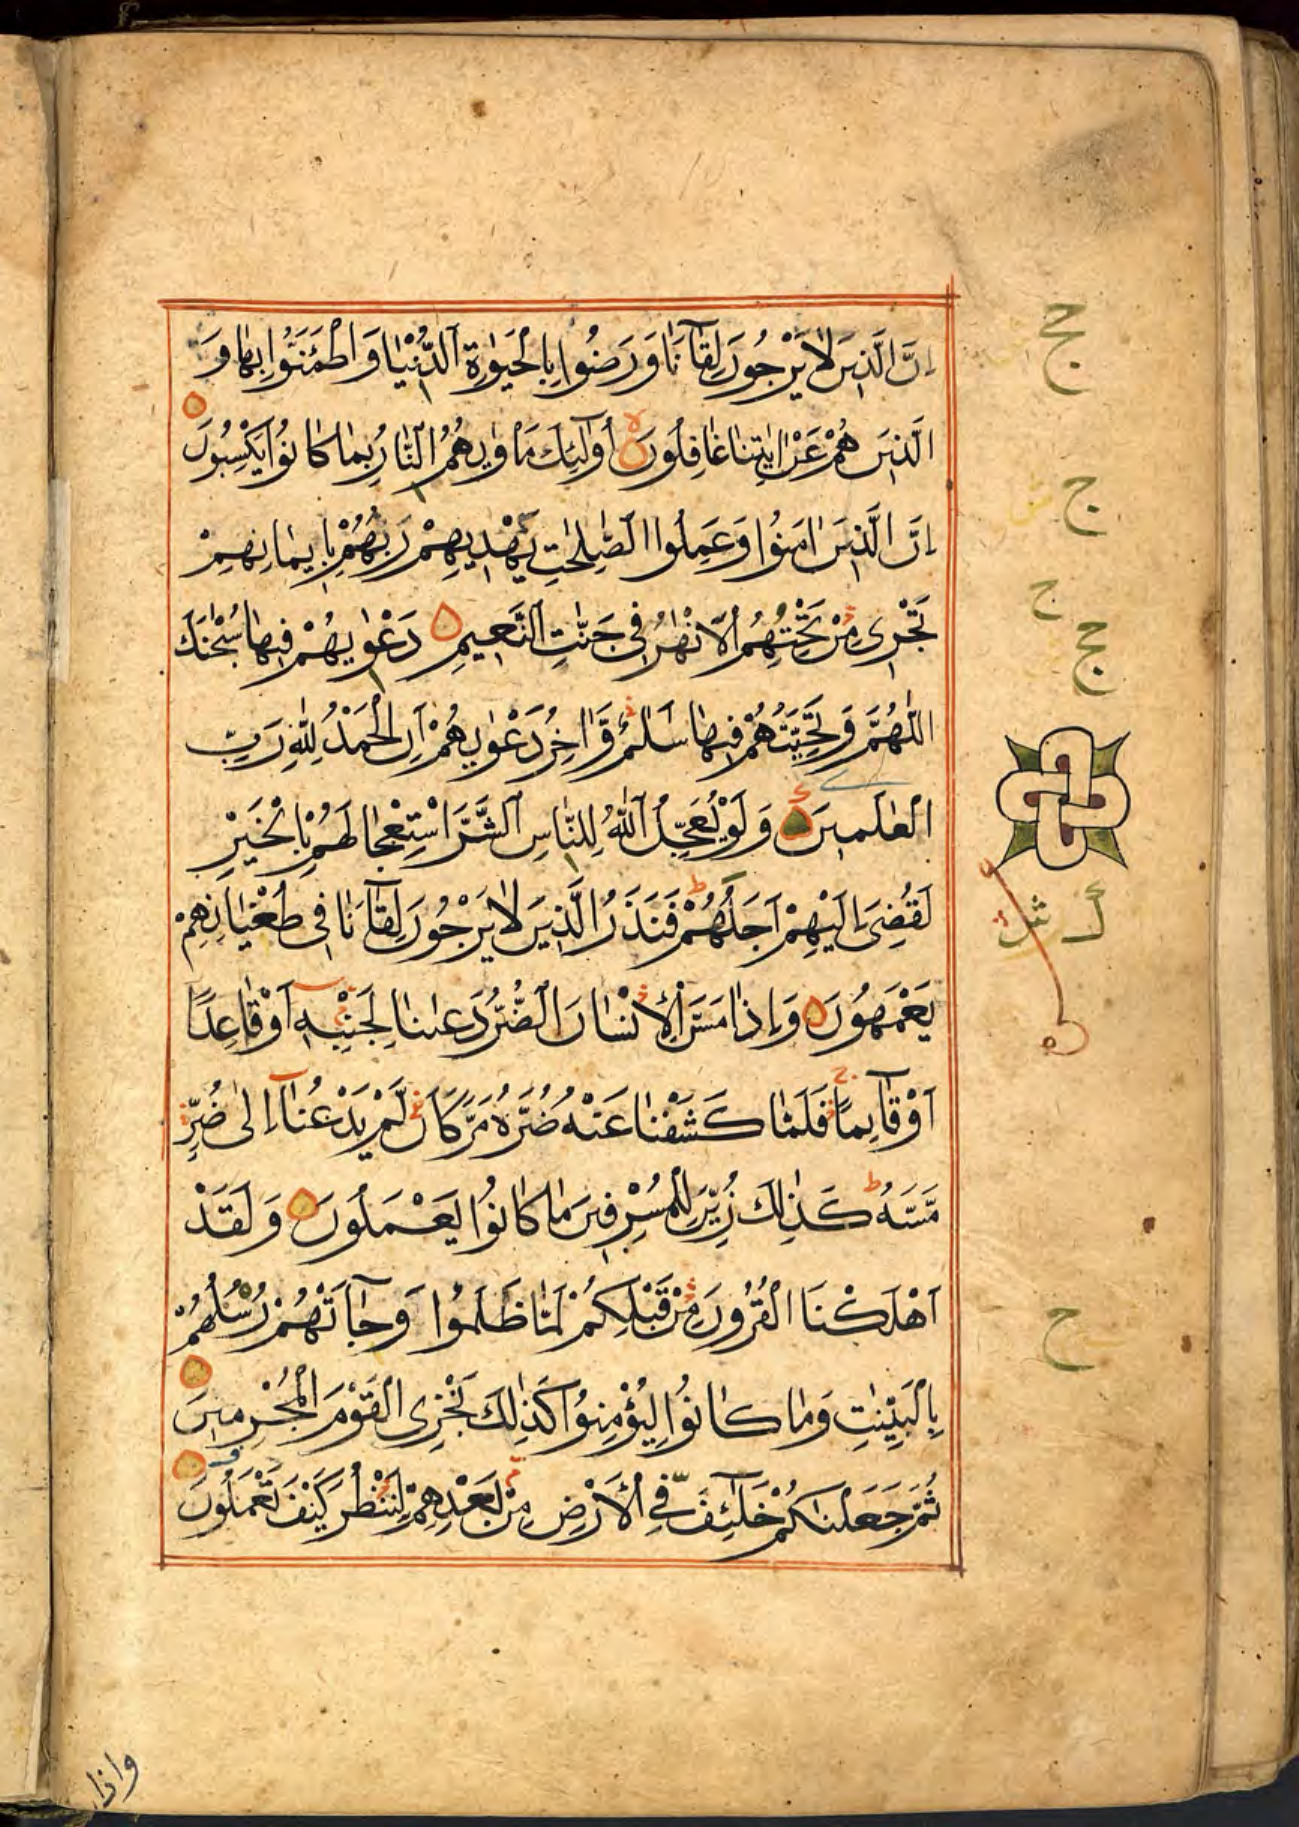 اِنَّ الَّذِينَ لَا يَرْجُونَ لِقَآءَنَا وَرَضُوا بِالْحَيٰوةِ الدُّنْيَا وَاطْمَئَنُّوا بِهَا وَ
الَّذِينَ هُمْ عَنْ اٰيٰتِنَا غَافِلُونَ اُولٰٓئِكَ مَأْوٰيهُمُ النَّارُ بِمَا كَانُوا يَكْسِبُونَ
اِنَّ الَّذِينَ اٰمَنُوا وَعَمِلُوا الصّٰلِحٰتِ يَهْدِيهِمْ رَبُّهُمْ بِاِيمَانِهِمْ
تَجْرِى مِنْ تَحْتِهِمُ الْاَنْهٰرُ فِى جَنّٰتِ النَّعِيمِ دَعْوٰيهُمْ فِيهَا سُبْحٰنَكَ
اللّٰهُمَّ وَتَحِيَّتُهُمْ فِيهَا سَلٰمٌ وَّاٰخِرُ دَعْوٰيهُمْ اَنِ الْحَمْدُ لِلّٰهِ رَبِّ
الْعٰلَمِينَ وَلَوْ يُعَجِّلُ اللّٰهُ لِلنَّاسِ الشَّرَّ اسْتِعْجَالَهُمْ بِالْخَيْرِ
لَقُضِىَ اِلَيْهِمْ اَجَلُهُمْ فَنَذَرُ الَّذِينَ لَا يَرْجُونَ لِقَآءَنَا فِى طُغْيَانِهِمْ
يَعْمَهُونَ وَاِذَا مَسَّ الْاِنْسَانَ الضُّرُّ دَعَانَا لِجَنْبِهِ اَوْ قَاعِدًا
اَوْ قَآئِمًا فَلَمَّا كَشَفْنَا عَنْهُ ضُرَّهُ مَرَّ كَاَنْ لَّمْ يَدْعُنَآ اِلٰى ضُرٍّ
مَّسَّهُ كَذٰلِكَ زُيِّنَ لِلْمُسْرِفِينَ مَا كَانُوا يَعْمَلُونَ وَلَقَدْ
اَهْلَكْنَا الْقُرُونَ مِنْ قَبْلِكُمْ لَمَّا ظَلَمُوا وَجَآءَتْهُمْ رُسُلُهُمْ
بِالْبَيِّنٰتِ وَمَا كَانُوا لِيُؤْمِنُوا كَذٰلِكَ نَجْزِى الْقَوْمَ الْمُجْرِمِينَ
ثُمَّ جَعَلْنَاكُمْ خَلٰٓئِفَ فِى الْاَرْضِ مِنْ بَعْدِهِمْ لِنَنْظُرَ كَيْفَ تَعْمَلُونَ
واذا